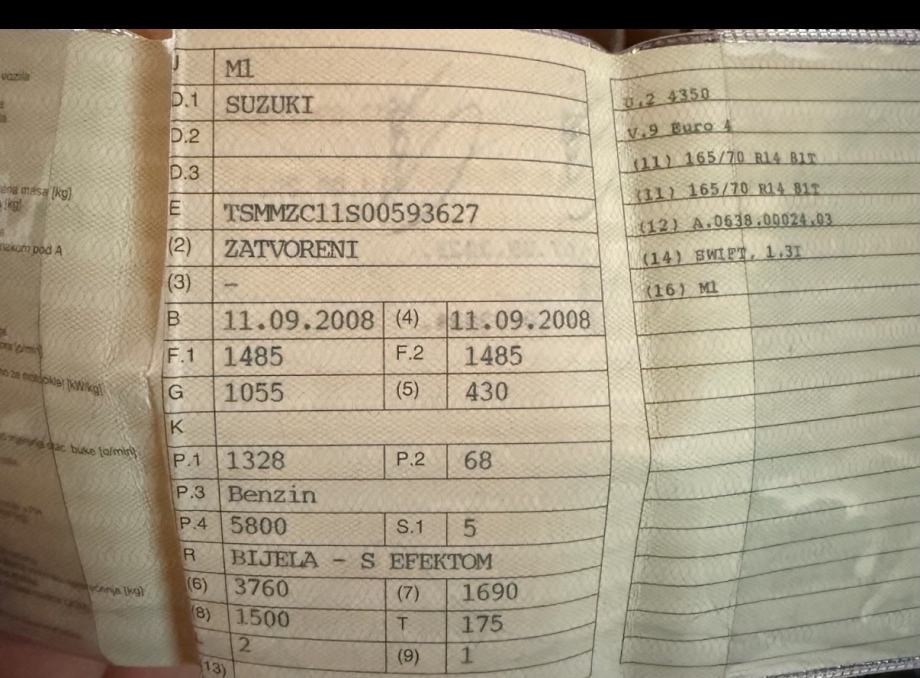 vozila
J M1
D.1 SUZUKI
D.2
D.3
E TSMMZC11S00593627
(2) ZATVORENI
(3) -
B 11.09.2008 (4) 11.09.2008
F.1 1485 F.2 1485
G 1055 (5) 430
K
P.1 1328 P.2 68
P.3 Benzin
P.4 5800 S.1 5
R BIJELA - S EFEKTOM
(6) 3760 (7) 1690
(8) 1500 T 175
2 (9) 1
(13)
masa [kg]
[kg]
pod A
[kW/kg]
stac. buke [o/min]
[kg]
U.2 4350
V.9 Euro 4
(11) 165/70 R14 81T
(11) 165/70 R14 81T
(12) A.0638.00024.03
(14) SWIFT, 1.3I
(16) M1